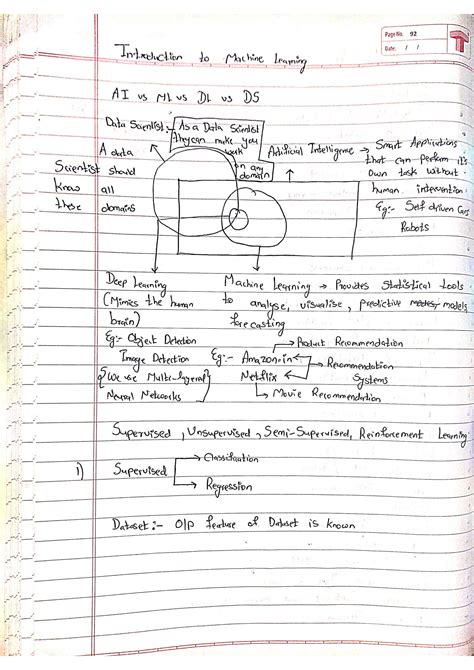 Page No. 92
Date: / /
Introduction to Machine Learning
AI vs ML vs DL vs DS
Data Scientist:-
As a Data Scientist
they can make you
work
in any
domain
A data
Scientist should
know all
these domains
Artificial Intelligence → Smart Applications
that can perform its
own task without
human intervention
Eg:- Self driven Cars
Robots
Deep Learning
(Mimics the human
brain)
Eg:- Object Detection
Image Detection
{We use Multi-layered}
Neural Networks
Machine Learning → Provides Statistical tools
to analyse, visualise, predictive models
forecasting
→ Product Recommendation
Eg:- Amazon.in
Netflix
→ Recommendation
Systems
→ Movie Recommendation
Supervised, Unsupervised, Semi-Supervised, Reinforcement Learning
1) Supervised
→ Classification
→ Regression
Dataset:- O/p feature of Dataset is known